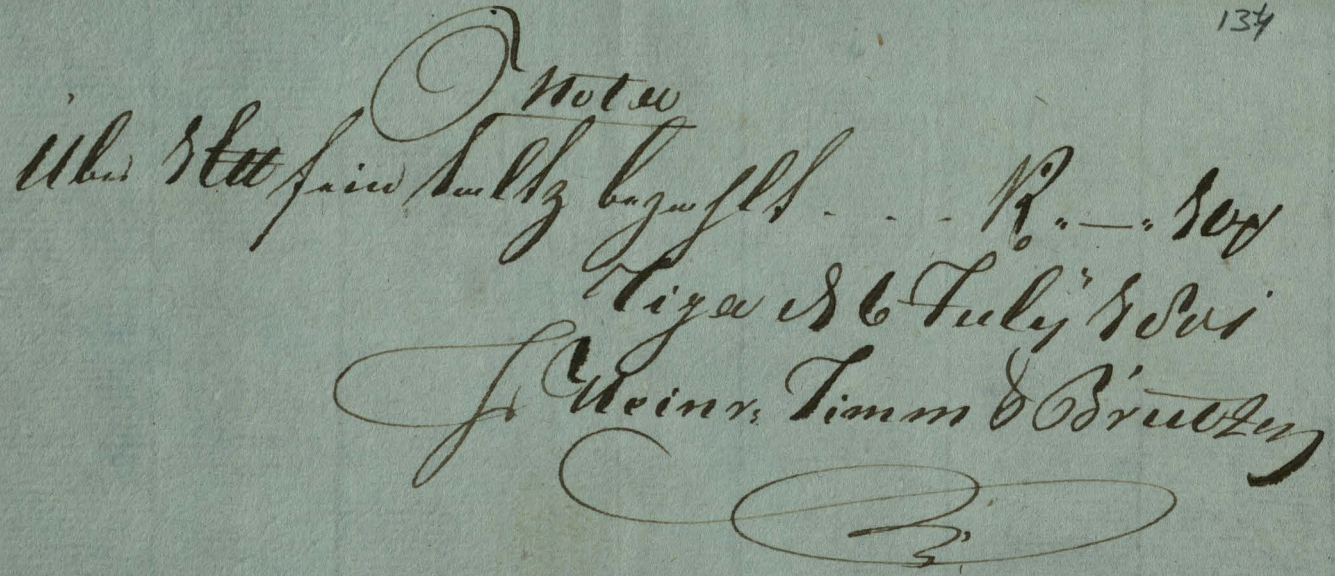 134
Nota
Über 1 ℔ fein Saltz bezahlt . . . R„—„ 10
Riga d 6 July 1801
Heinr: Timm & Brutzer